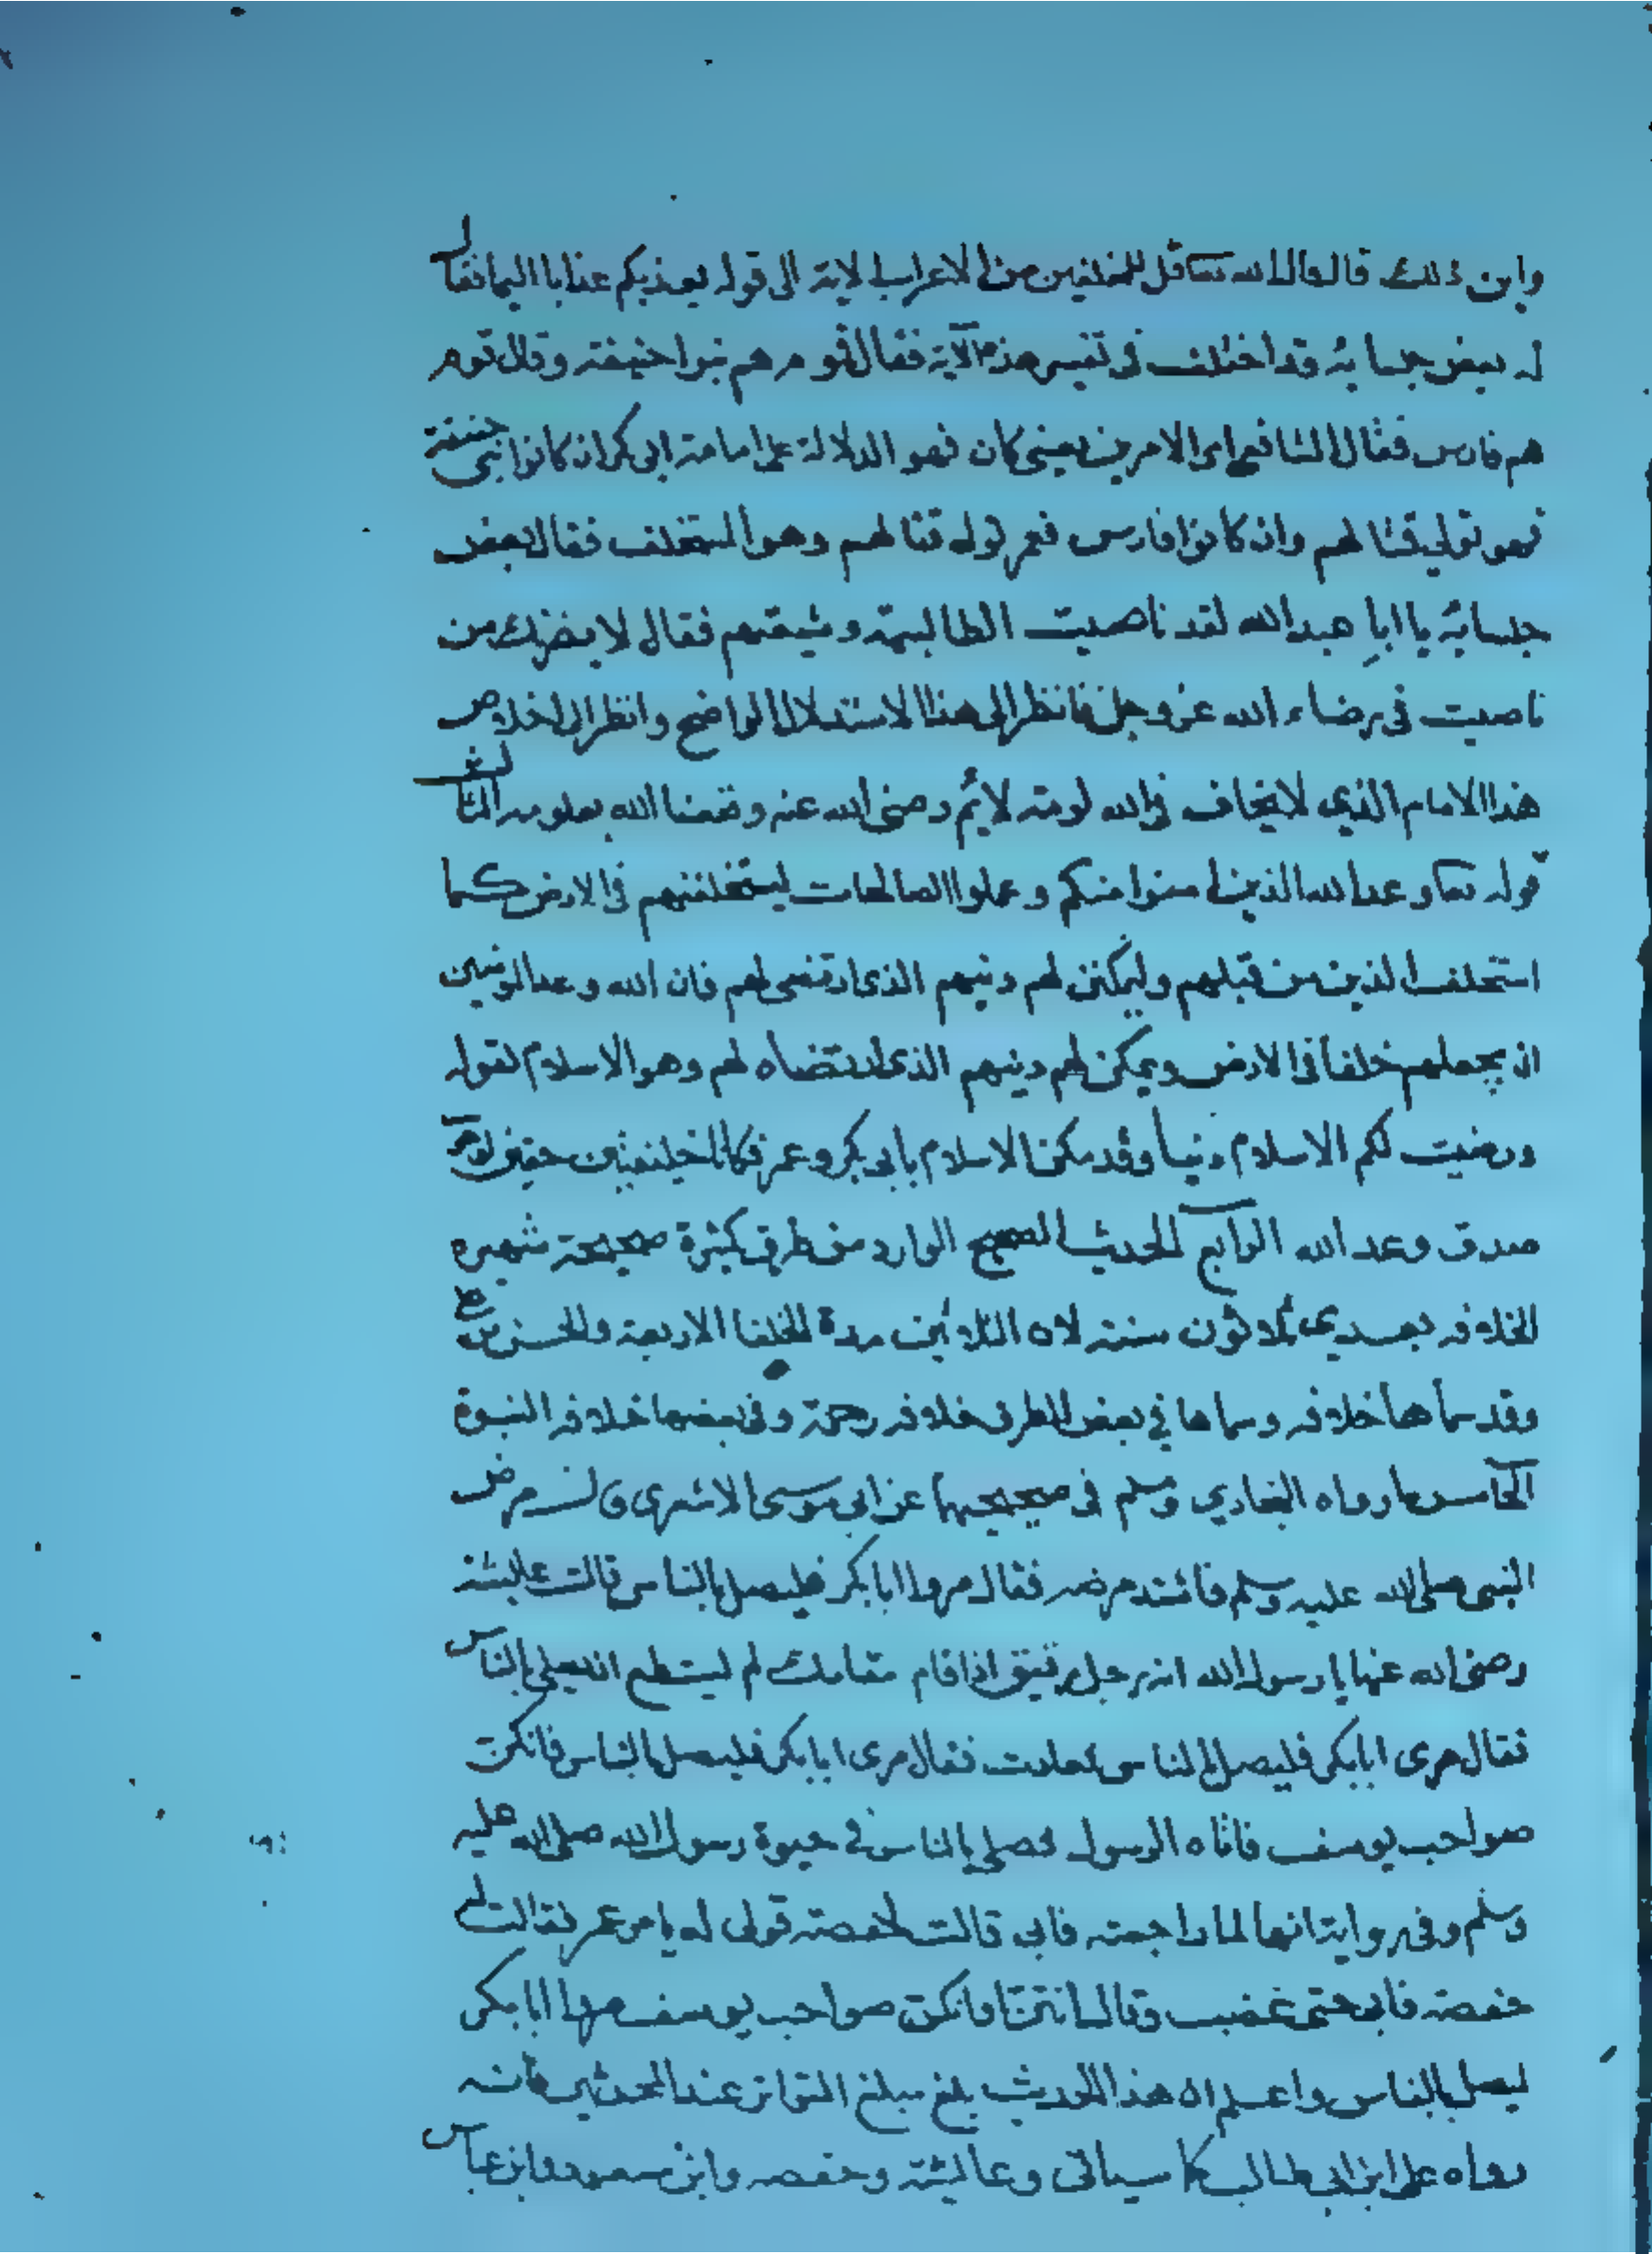 واين ذلك قال قال الله تعا قل للمخلفين من الاعراب الاية الى قوله يعذبكم عذابا اليما فقال
له بعض جلسائه وقد اختلف فى تفسير هذه الآية فقال قوم هم بنوا حنيفة وقال قوم
هم فارس فقال الشافعى اى الامرين يعنى كان فهو الدلالة على امامة ابى بكر ان كانوا بنى حنيفة
فهو تولى قتالهم وان كانوا فارس فعمر تولى قتالهم وهو المستخلف فقال بعض
جلسائه يا ابا عبد الله لقد ناصبت الطالبية وشيعتهم فقال لا يضرك من
ناصبت فى رضاء الله عز وجل فانظر الى هذا الاستدلال الواضح وانظر الى اخلاص
هذا الامام الذي لا يخاف فى الله لومة لايم رضى الله عنه ونفعنا الله بعلومه الثالث
قوله تعا وعد الله الذين امنوا منكم وعملوا الصالحات ليستخلفنهم فى الارض كما
استخلف الذين من قبلهم وليمكنن لهم دينهم الذى ارتضى لهم فان الله وعد المومنين
ان يجعلهم خلفا فى الارض ويمكن لهم دينهم الذى ارتضاه لهم وهو الاسلام لقوله
ورضيت لكم الاسلام دينا وقد مكن الاسلام بابى بكر وعمر فكانا خليفتين حقين
صدق وعد الله الرابع الحديث الصحيح الوارد من طرق كثيرة صحيحة شهيرة
الخلافه بعدى ثلاثون سنة لان الثلاثين مدة الخلفا الاربعة والحسن
وقد سماها خلافه وسماها في بعض الطرق خلافه رحمة وفى بعضها خلافه النبوة
الخامس ما رواه البخاري ومسلم فى صحيحيهما عن ابى موسى الاشعرى قال مرض
النبى صلى الله عليه وسلم فاشتد مرضه فقال مروا ابا بكر فليصل بالناس قالت عايشة
رضى الله عنها يا رسول الله انه رجل رقيق اذا قام مقامك لم يستطع ان يصلى بالناس
فقال مرى ابا بكر فليصل بالناس فعادت فقال مرى ابا بكر فليصل بالناس فانكن
صواحب يوسف فاتاه الرسول فصلى بالناس فى حيوة رسول الله صلى الله عليه
وسلم وفى رواية انها لما راجعته فابى قالت لحفصة قولى له يامر عمر فقالت له
حفصة فابى حتى غضب وقال انتن او انكن صواحب يوسف مروا ابا بكر
ليصل بالناس واعلم ان هذا الحديث بلغ مبلغ التواتر عند المحدثين فانه
رواه على ابن ابى طالب كما سياتى وعايشة وحفصه وابن مسعود وابن عباس